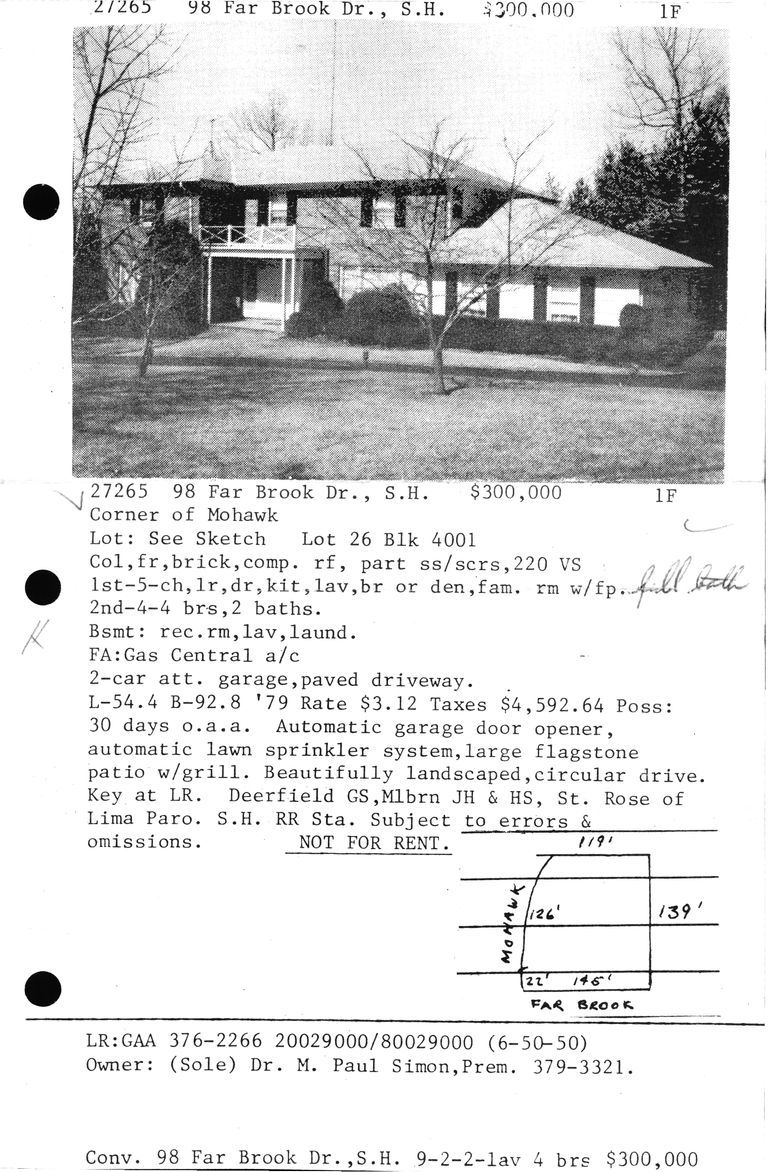 27265 98 Far Brook Dr., S.H. $300,000 1F
27265 98 Far Brook Dr., S.H. $300,000 1F
Corner of Mohawk
Lot: See Sketch Lot 26 Blk 4001
Col,fr,brick,comp. rf, part ss/scrs,220 VS
1st-5-ch,lr,dr,kit,lav,br or den,fam. rm w/fp. full bath
2nd-4-4 brs,2 baths.
Bsmt: rec.rm,lav,laund.
FA:Gas Central a/c
2-car att. garage,paved driveway.
L-54.4 B-92.8 '79 Rate $3.12 Taxes $4,592.64 Poss:
30 days o.a.a. Automatic garage door opener,
automatic lawn sprinkler system,large flagstone
patio w/grill. Beautifully landscaped,circular drive.
Key at LR. Deerfield GS,Mlbrn JH & HS, St. Rose of
Lima Paro. S.H. RR Sta. Subject to errors &
omissions. NOT FOR RENT.
119'
MOHAWK
126' 139'
22' 145'
FAR BROOK
LR:GAA 376-2266 20029000/80029000 (6-50-50)
Owner: (Sole) Dr. M. Paul Simon,Prem. 379-3321.
Conv. 98 Far Brook Dr.,S.H. 9-2-2-lav 4 brs $300,000